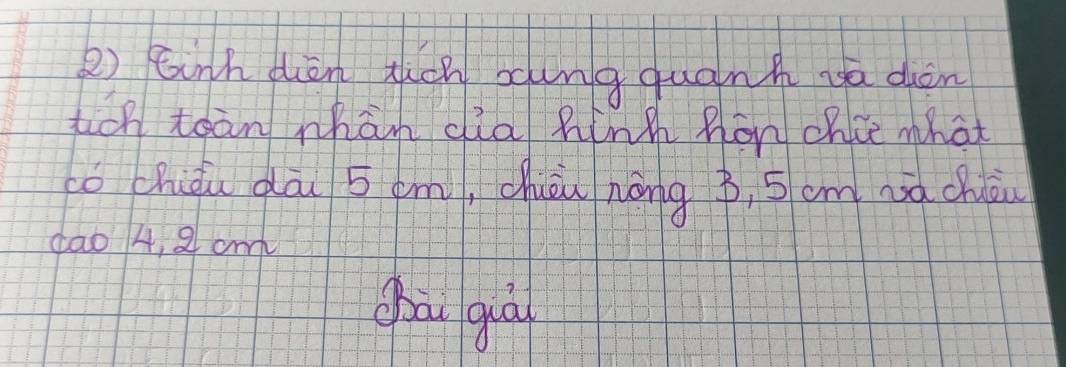 2) Tính diện tích xung quanh và diện
tích toàn phần của hình hộp chữ nhật
có chiều dài 5 cm, chiều rộng 3,5 cm và chiều
cao 4,2 cm
Bài giải